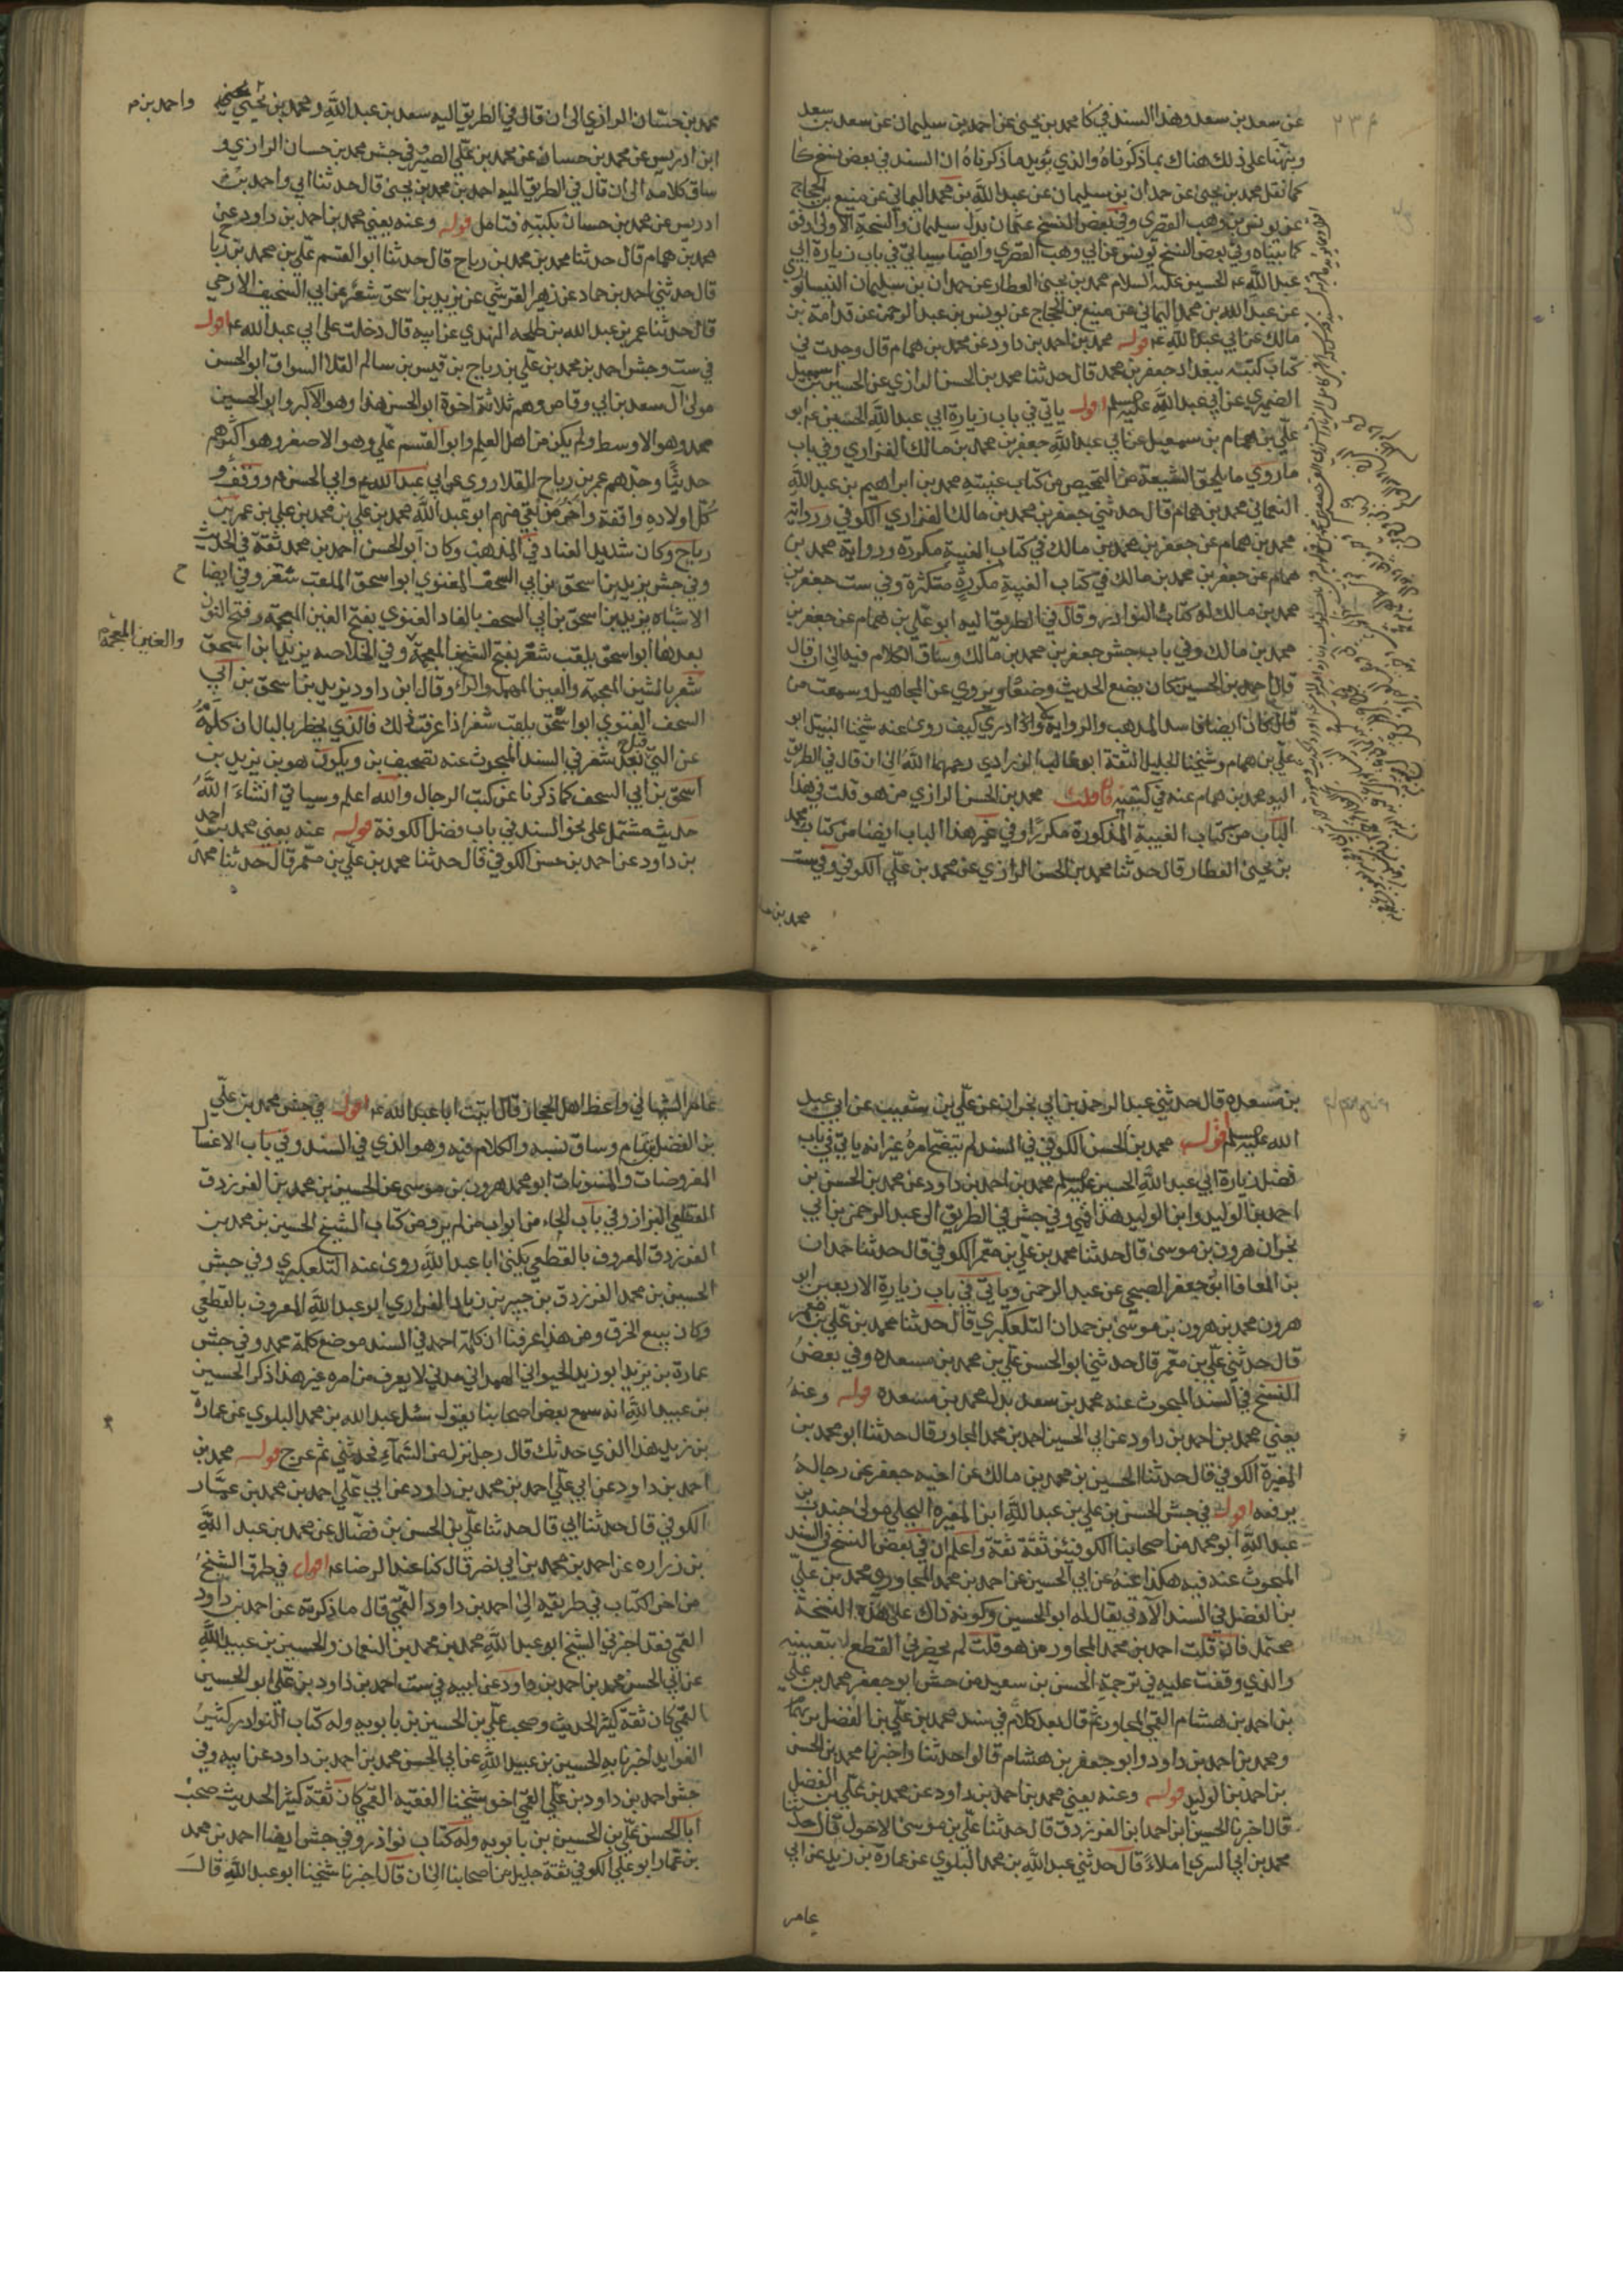 عن سعد بن سعد وهذا السند في كا محمد بن يحيى عن احمد بن سليمان عن سعد بن سعد
ونبهنا على ذلك هناك بما ذكرناه والذي يؤيد ما ذكرناه ان السند في بعض نسخ كا
كما نقل محمد بن يحيى عن حمدان بن سليمان عن عبد الله بن محمد اليماني عن منيع بن الحجاج
عن يونس بن وهب القصري وفي بعض النسخ عثمان بدل سليمان والنسخة الاولى اوفق
كما بيناه وفي بعض النسخ يونس عن ابي وهب القصري وايضا سياتي في باب زيارة ابي
عبد الله الحسين عليه السلام محمد بن يحيى العطار عن حمدان بن سليمان النيسابوري
عن عبد الله بن محمد اليماني عن منيع بن الحجاج عن يونس بن عبد الرحمن عن قدامة بن
مالك عن ابي عبد الله ع قوله محمد بن احمد بن داود عن محمد بن همام قال وجدت في
كتاب كتبه ببغداد جعفر بن محمد قال حدثنا محمد بن الحسن الرازي عن الحسين بن اسمعيل
الصيمري عن ابي عبد الله عليه السلم اقول ياتي في باب زيارة ابي عبد الله الحسين ع ابو
علي بن همام بن سهيل عن ابي عبد الله جعفر بن محمد بن مالك الفزاري وفي باب
ما روي مما يلحق الشيعة من التمحيص من كتاب غيبته محمد بن ابراهيم بن عبد الله
النعماني محمد بن همام قال حدثني جعفر بن محمد بن مالك الفزاري الكوفي ورواية
محمد بن همام عن جعفر بن محمد بن مالك في كتاب الغيبة مكررة ورواية محمد بن
همام عن جعفر بن محمد بن مالك في كتاب الغيبة مكررة متكثرة وفي ست جعفر بن
محمد بن مالك له كتاب النوادر وقال في الطريق اليه ابو علي بن همام عن جعفر بن
محمد بن مالك وفي باب جش جعفر بن محمد بن مالك وساق الكلام فيه الى ان قال
قال احمد بن الحسين كان يضع الحديث وضعا ويروي عن المجاهيل وسمعت من
قال كان ايضا فاسد المذهب والرواية ولا ادري كيف روى عنه شيخنا النبيل ابو
علي بن همام وشيخنا الجليل الثقة ابو غالب الزراري رحمهما الله الى ان قال في الطريق
اليه محمد بن همام عنه في كتبه فان قلت محمد بن الحسن الرازي من هو قلت في هذا
الباب من كتاب الغيبة المذكورة مكررا وفي غير هذا الباب ايضا من كتاب محمد
بن يحيى العطار قال حدثنا محمد بن الحسن الرازي عن محمد بن علي الكوفي وفي ست
محمد بن حسان الرازي الى ان قال في الطريق اليه سعد بن عبد الله ومحمد بن يحيى
واحمد بن
ابن ادريس عن محمد بن حسان عن محمد بن علي الصيرفي وفي جش محمد بن حسان الرازي و
ساق كلامه الى ان قال في الطريق اليه احمد بن محمد بن يحيى قال حدثنا ابي واحمد بن
ادريس عن محمد بن حسان بكتبه فتامل قوله وعنه يعني محمد بن احمد بن داود عن
محمد بن همام قال حدثنا محمد بن محمد بن رباح قال حدثنا ابو القسم علي بن محمد بن ربا
قال حدثني احمد بن حماد عن زهير القرشي عن يزيد بن اسحق شعر عن ابي السخيف الارحي
قال حدثنا عمر بن عبد الله بن طلحه النهدي عن ابيه قال دخلت على ابي عبد الله ع اقول
في ست وجش احمد بن محمد بن علي بن رباح بن قيس بن سالم القلا السواق ابو الحسن
مولى آل سعد بن ابي وقاص وهم ثلاثة اخوة ابو الحسن هذا وهو الاكبر وابو الحسين
محمد وهو الاوسط ولم يكن من اهل العلم وابو القسم علي وهو الاصغر وهو اكثرهم
حديثا وجدهم عمر بن رباح القلا روى عن ابي عبد الله وابي الحسن ع ووقف و
كل اولاده واقفة وآخر من بقي منهم ابو عبد الله محمد بن علي بن محمد بن علي بن عمر بن
رباح وكان شديد العناد في المذهب وكان ابو الحسن احمد بن محمد ثقة في الحديث
وفي جش يزيد بن اسحق بن ابي السحف الغنوي ابو اسحق الملقب شغر وفي ايضا ح
الاشتباه يزيد بن اسحق بن ابي السحف بالفاء الغنوي بفتح الغين المعجمة وفتح النون
بعدها ابو اسحق يلقب شغر بفتح الشين المعجمة وفي الخلاصه يزيد بن اسحق
والغين المعجمة
شغر بالشين المعجمة والعين المهملة والراء وقال ابن داود يزيد بن اسحق بن ابي
السحف الغنوي ابو اسحق يلقب شغر اذا عرفت ذلك فالذي يخطر بالبال ان كلمة
عن التي قبل شغر في السند المبحوث عنه تصحيف بن ويكون هو بن يزيد بن
اسحق بن ابي السحف كما ذكرنا عن كتب الرجال والله اعلم وسياتي انشاء الله
حديث مشتمل على نحو السند في باب فضل الكوفة قوله عنه يعني محمد بن احمد
بن داود عن احمد بن حسن الكوفي قال حدثنا محمد بن علي بن معمر قال حدثنا محمد
بن مسعدة قال حدثني عبد الرحمن بن ابي نجران عن علي بن شعيب عن ابي عبد
الله عليه السلم اقول محمد بن الحسن الكوفي في السند لم يتضح امره غير انه ياتي في باب
فضل زيارة ابي عبد الله الحسين عليه السلم محمد بن احمد بن داود عن محمد بن الحسن بن
احمد بن الوليد وابن الوليد هذا قمي وفي جش في الطريق الى عبد الرحمن بن ابي
نجران هرون بن موسى قال حدثنا محمد بن علي بن معمر الكوفي قال حدثنا حمدان
بن المعافا ابو جعفر الصبيحي عن عبد الرحمن وياتي في باب زيارة الاربعين ابو
هرون محمد بن هرون بن موسى بن حمدان التلعكبري قال حدثنا محمد بن علي بن معمر
قال حدثني علي بن معمر قال حدثني ابو الحسن علي بن محمد بن مسعده وفي بعض
النسخ في السند المبحوث عنه محمد بن سعد بدل محمد بن مسعده قوله وعنه
يعني محمد بن احمد بن داود عن ابي الحسين احمد بن محمد المجاور قال حدثنا ابو محمد بن
المغيرة الكوفي قال حدثنا الحسين بن محمد بن مالك عن اخيه جعفر عن رجاله
يرفعه اقول في جش الحسن بن علي بن عبد الله ابن المغيره البجلي مولى جندب بن
عبد الله ابو محمد من اصحابنا الكوفيين ثقة ثقة واعلم ان في بعض النسخ في السند
المبحوث عنه فيه هكذا عنه عن ابي الحسين عن احمد بن محمد المجاور ومحمد بن علي
بن الفضل في السند الآتي يقال له ابو الحسين وكونه ذاك على هذه النسخة
محتمل فان قلت احمد بن محمد المجاور من هو قلت لم يحضرني القطع بتعيينه
والذي وقفت عليه في ترجمة الحسن بن سعيد من جش ابو جعفر محمد بن علي
بن احمد بن هشام القمي المجاور ثم قال بعد كلام في سند محمد بن علي بن الفضل بن تمام
ومحمد بن احمد بن داود وابو جعفر بن هشام قالوا حدثنا واخبرنا محمد بن الحسن
بن احمد بن الوليد قوله وعنه يعني محمد بن احمد بن داود عن محمد بن علي بن الفضل
قال اخبرنا الحسين ابن احمد ابن الفرزدق قال حدثنا علي بن موسى الاحول قال حدثنا
محمد بن ابي السري املاء قال حدثني عبد الله بن محمد البلوي عن عمارة بن زيد عن ابي
عامر
عامر التبياني واعظ اهل الحجاز قال اتيت ابا عبد الله ع اقول في جش محمد بن علي
بن الفضل بن تمام وساق نسبه والكلام فيه وهو الذي في السند وفي باب الاغسال
المفروضات والمسنونات ابو محمد هرون بن موسى عن الحسين بن محمد بن الفرزدق
القطعي البزاز وفي باب الحاء من ابواب من لم يرو من كتاب الشيخ الحسين بن محمد بن
الفرزدق المعروف بالقطعي يكنى ابا عبد الله روى عنه التلعكبري وفي جش
الحسين بن محمد الفرزدق بن بجير بن زياد الفزاري ابو عبد الله المعروف بالقطعي
وكان يبيع الخرق ومن هذا عرفنا ان كلمة احمد في السند موضع كلمة محمد وفي جش
عمارة بن يزيد ابو زيد الخيواني الهمداني مدني لا يعرف من امره غير هذا ذكر الحسين
بن عبيد الله انه سمع بعض اصحابنا يقول سئل عبد الله بن محمد البلوي عن عمارة
بن زيد هذا الذي حدثك قال رجل نزل من السماء فحدثني ثم عرج قوله محمد بن
احمد بن داود عن ابي علي احمد بن محمد بن داود عن ابي علي احمد بن محمد بن عمار
الكوفي قال حدثنا ابي قال حدثنا علي بن الحسن بن فضال عن محمد بن عبد الله
بن زراره عن احمد بن محمد بن ابي نصر قال كنا عند الرضا ع اقول في طرق الشيخ
من اخر الكتاب في طريقه الى احمد بن داود القمي قال ما ذكرته عن احمد بن داود
القمي فقد اخبرني الشيخ ابو عبد الله محمد بن محمد بن النعمان والحسين بن عبيد الله
عن ابي الحسن محمد بن احمد بن داود عن ابيه في ست احمد بن داود بن علي ابو الحسين
القمي كان ثقة كثير الحديث وصحب علي بن الحسين بن بابويه وله كتاب النوادر كثير
الفوايد اخبرنا به الحسين بن عبيد الله عن ابي الحسن محمد بن احمد بن داود عن ابيه وفي
جش احمد بن داود بن علي القمي اخو شيخنا الفقيه القمي كان ثقة كثير الحديث صحب
ابا الحسن علي بن الحسين بن بابويه وله كتاب نوادر وفي جش ايضا احمد بن محمد
بن عمار ابو علي الكوفي ثقة جليل من اصحابنا الى ان قال اخبرنا شيخنا ابو عبد الله قال